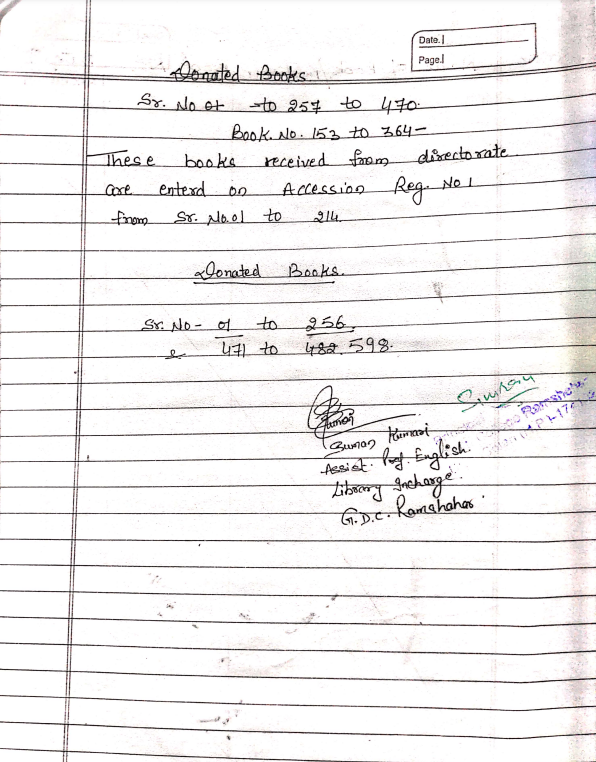 Date.
Page.
Donated Books
Sr. No 01 to 257 to 470.
Book. No. 153 to 364-
These books received from directorate
are enterd on Accession Reg. No 1
from Sr. No.01 to 214.
Donated Books.
Sr. No- 01 to 256
& 471 to 482. 598.
Suman
Simran
Suman Kumari
Assist. Prof. English.
Library Incharge.
G.D.C. Ramshahar